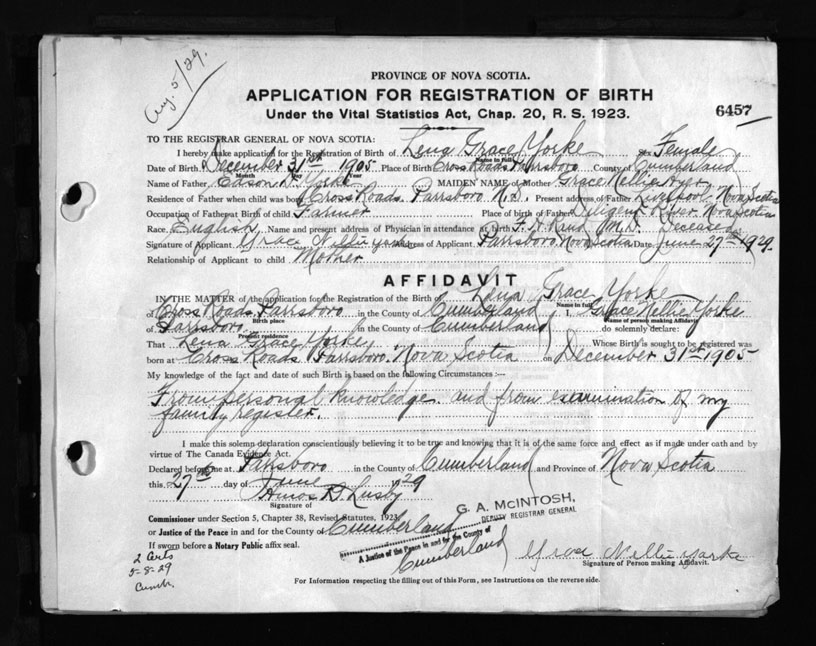 Aug. 5/29.
PROVINCE OF NOVA SCOTIA.
APPLICATION FOR REGISTRATION OF BIRTH
Under the Vital Statistics Act, Chap. 20, R. S. 1923.
6457
TO THE REGISTRAR GENERAL OF NOVA SCOTIA:
I hereby make application for the Registration of Birth of Lena Grace Yorke Sex Female
Name in full
Date of Birth December 31st 1905 Place of Birth Cross Roads Parrsboro County of Cumberland
Month Day Year
Name of Father Edson D. Yorke MAIDEN NAME of Mother Grace Nellie
Residence of Father when child was born Cross Roads. Parrsboro N.S. Present address of Father Liverpool, Nova Scotia
Occupation of Father at Birth of child Farmer Place of birth of Father Diligent River Nova Scotia
Race English Name and present address of Physician in attendance at birth F. A. Rand M.D. Deceased
Signature of Applicant Grace Nellie Yorke Address of Applicant Parrsboro Nova Scotia Date June 27th 1929.
Relationship of Applicant to child Mother
AFFIDAVIT
IN THE MATTER of the application for the Registration of the Birth of Lena Grace Yorke
Name in full
of Cross Roads, Parrsboro in the County of Cumberland I, Grace Nellie Yorke
Birth place Name of person making Affidavit
of Parrsboro. in the County of Cumberland do solemnly declare:
Present residence
That Lena Grace Yorke Whose Birth is sought to be registered was
born at Cross Roads Parrsboro. Nova Scotia on December 31st 1905
My knowledge of the fact and date of such Birth is based on the following Circumstances :—
From personal knowledge. and from examination of my
family register.
I make this solemn declaration conscientiously believing it to be true and knowing that it is of the same force and effect as if made under oath and by
virtue of The Canada Evidence Act.
Declared before me at Parrsboro in the County of Cumberland and Province of Nova Scotia
this 27th day of June 1929
Amos B. Lusby
Signature of
G. A. McINTOSH,
DEPUTY REGISTRAR GENERAL
Commissioner under Section 5, Chapter 38, Revised Statutes, 1923
or Justice of the Peace in and for the County of Cumberland
A Justice of the Peace in and for the County of
Cumberland
If sworn before a Notary Public affix seal.
Grace Nellie Yorke
Signature of Person making Affidavit.
2 Certs
5-8-29
Cumb.
For Information respecting the filling out of this Form, see Instructions on the reverse side.